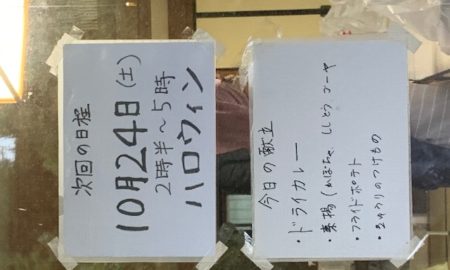 次回の日程
10月24日(土)
2時半～5時
ハロウィン
今日の献立
・ドライカレー
・素揚(かぼちゃ ししとう ゴーヤ
・フライドポテト
・きゅうりのつけもの